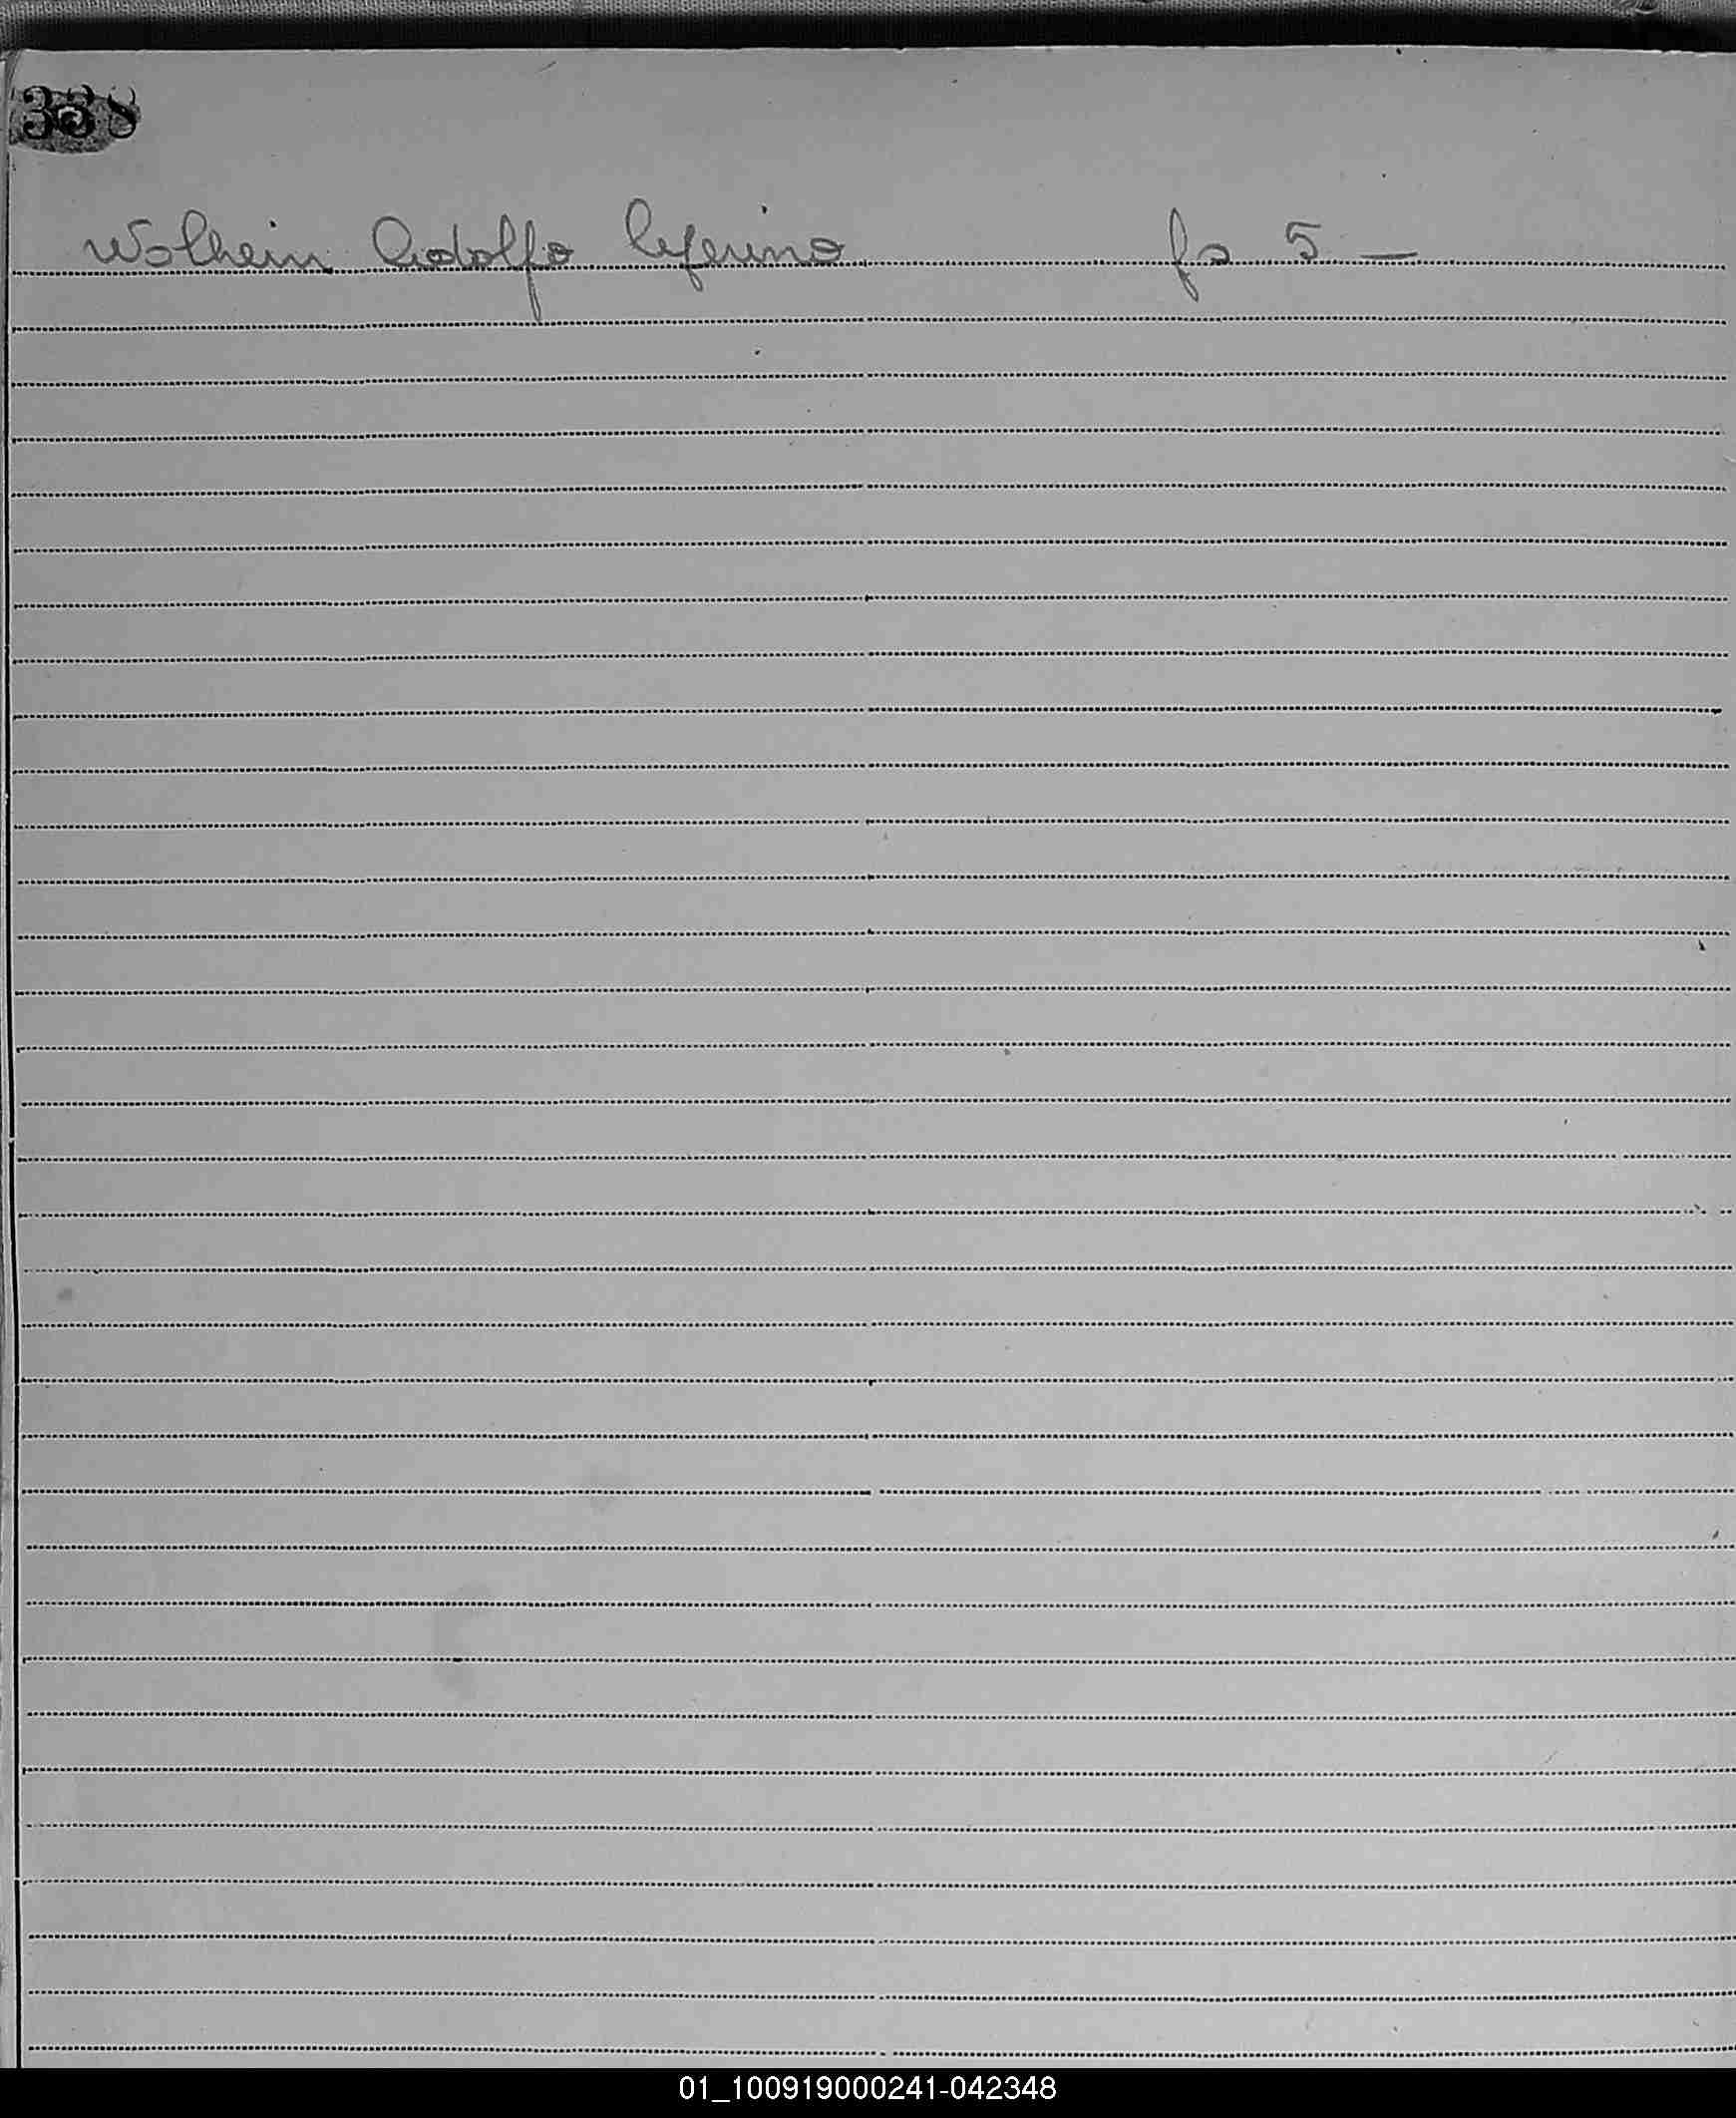 338
Wolhein Adolfo Ceferino fs 5 —
01_100919000241-042348